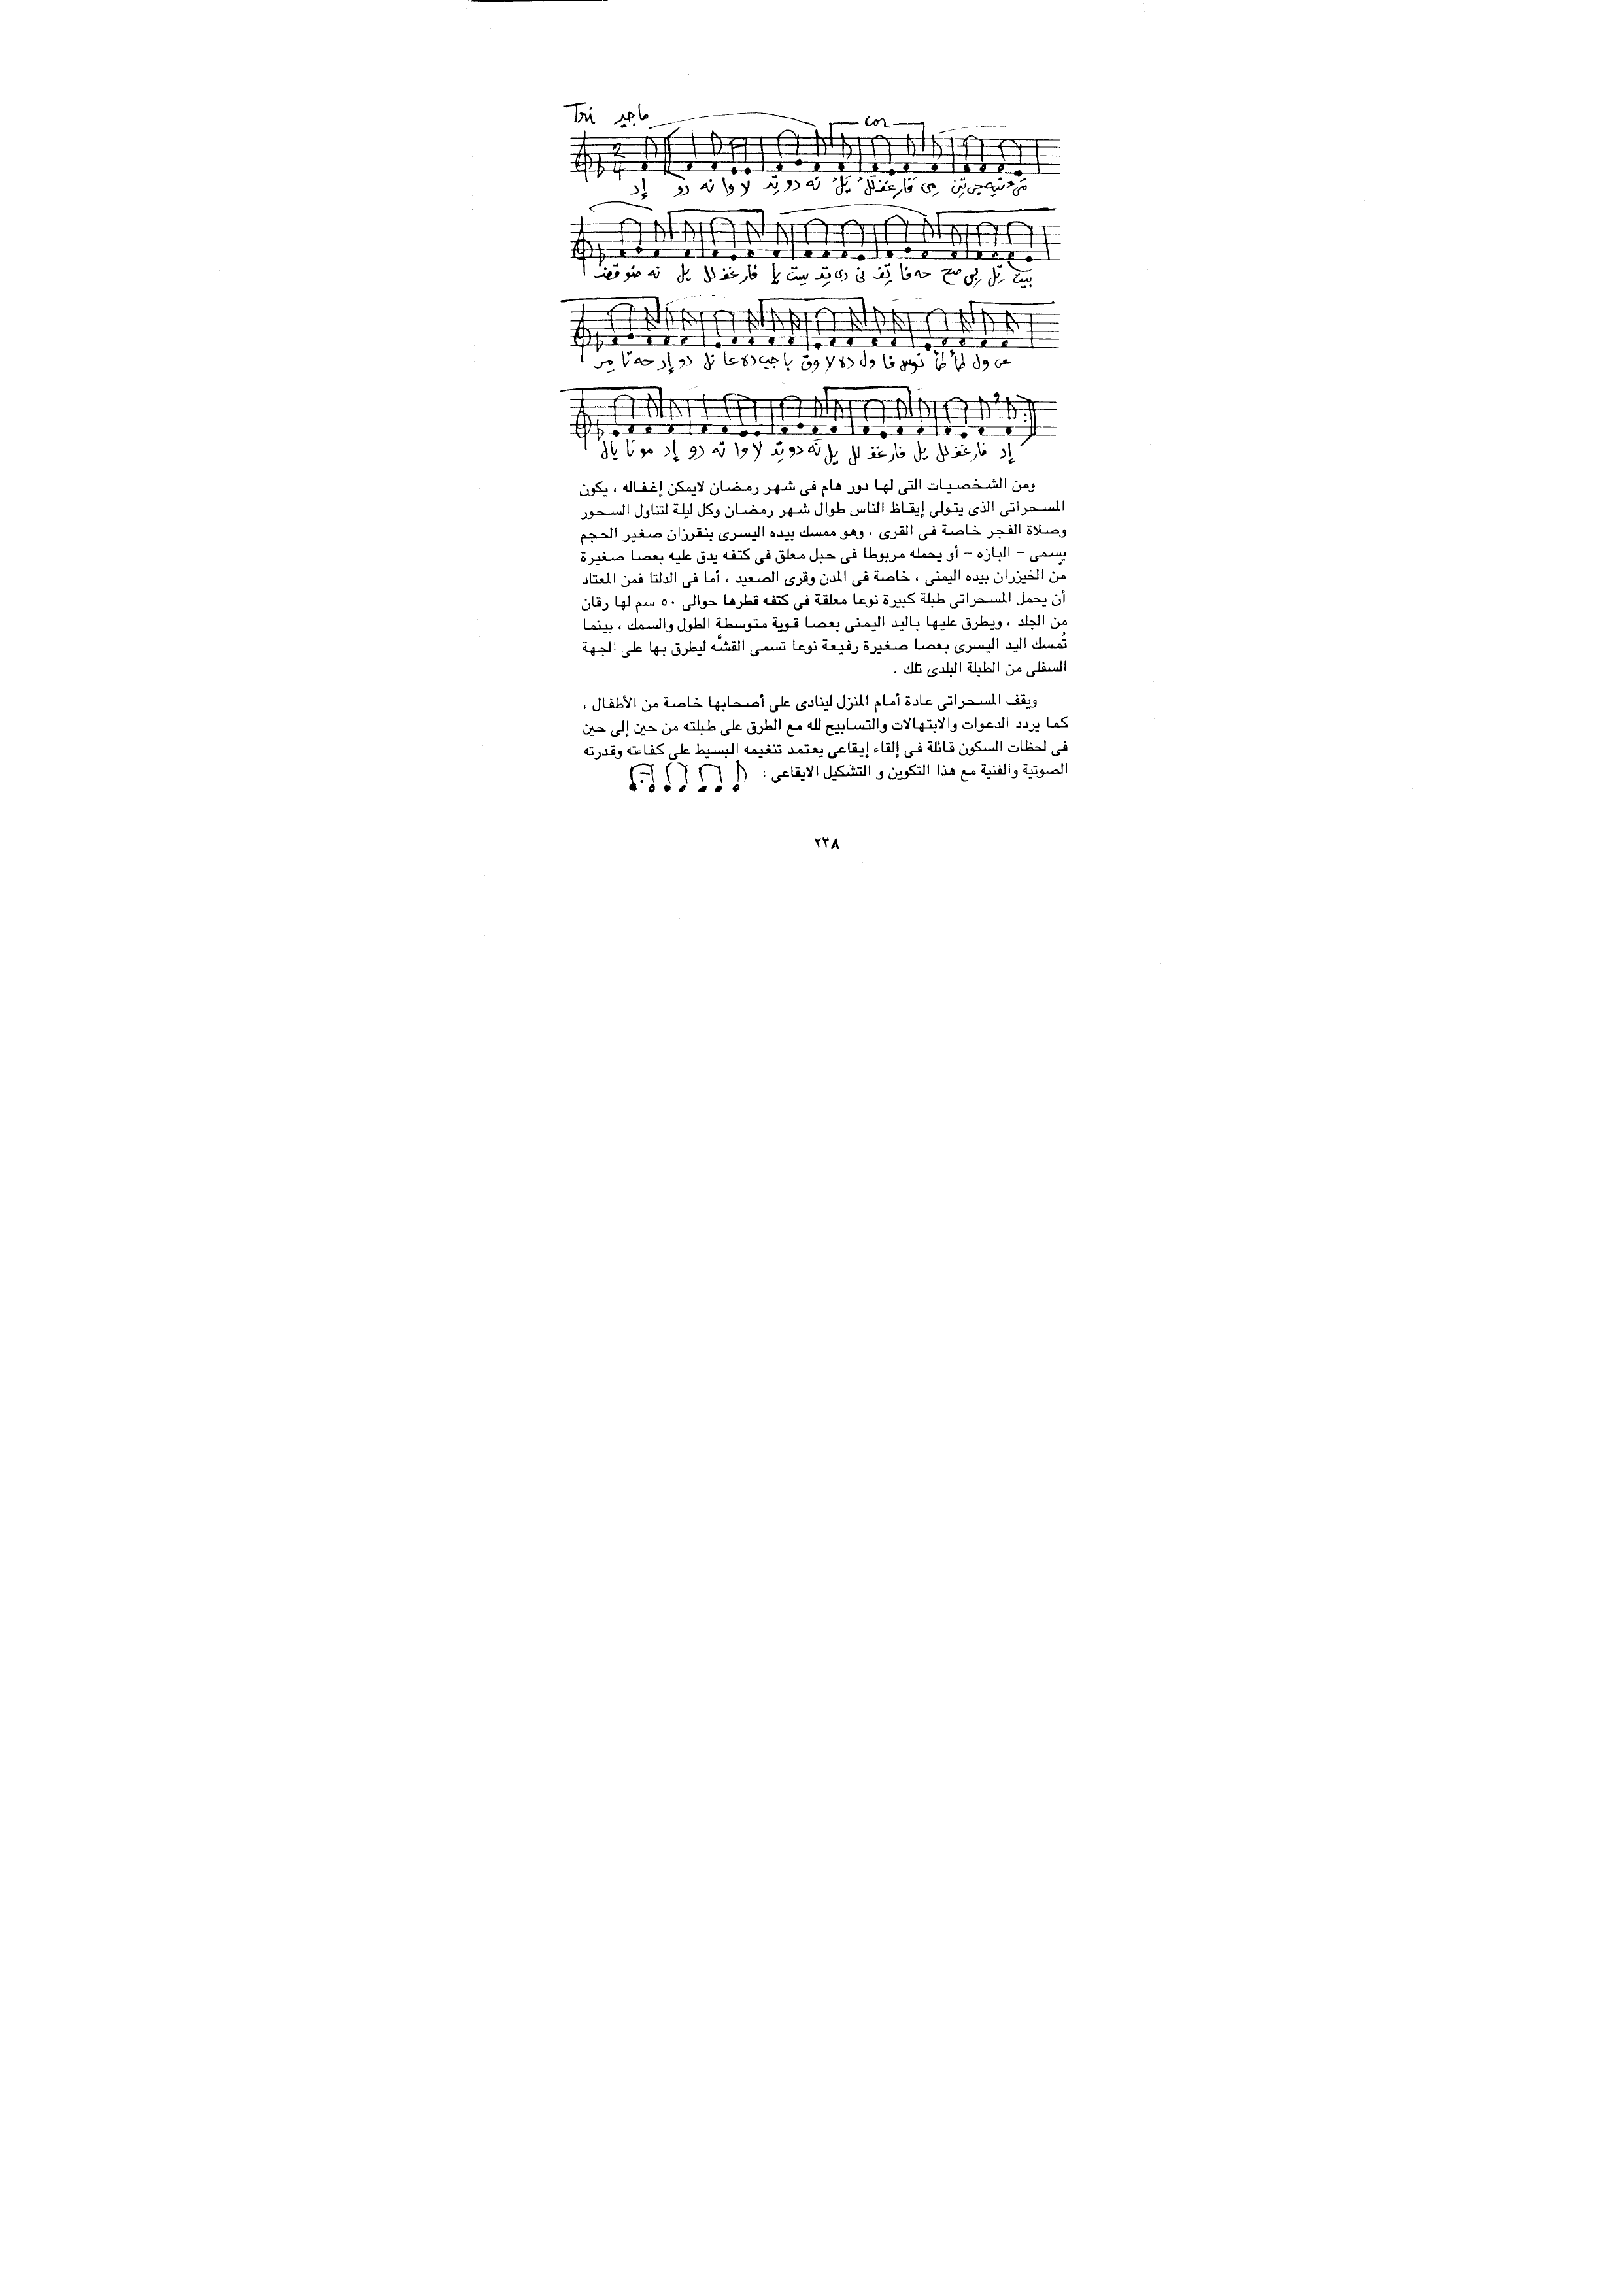 Tri ماجير
cor
2
4
إد دو ته وا لا تِد دو ته يَل لل غفـ فار مى تِن جى
ضو ته يل لل غفـ فار يا ست تِد دى نى تِفـ فا حه صح بِى تِل بيت
مِر تا حه إد دو تل عا ده جب با وق لا ده ول فا نوس طأ طأ ول عى
يال نا مو إد دو ته وا لا تِد دو ته يل لل غفـ فار يل لل غفـ فار إد
ومن الشخصيات التى لها دور هام فى شهر رمضان لايمكن إغفاله ، يكون
المسحراتى الذى يتولى إيقاظ الناس طوال شهر رمضان وكل ليلة لتناول السحور
وصلاة الفجر خاصة فى القرى ، وهو ممسك بيده اليسرى بنقرزان صغير الحجم
يسمى – البازه – أو يحمله مربوطا فى حبل معلق فى كتفه يدق عليه بعصا صغيرة
من الخيزران بيده اليمنى ، خاصة فى المدن وقرى الصعيد ، أما فى الدلتا فمن المعتاد
أن يحمل المسحراتى طبلة كبيرة نوعا معلقة فى كتفه قطرها حوالى ٥٠ سم لها رقان
من الجلد ، ويطرق عليها باليد اليمنى بعصا قوية متوسطة الطول والسمك ، بينما
تُمسك اليد اليسرى بعصا صغيرة رفيعة نوعا تسمى القشَّه ليطرق بها على الجهة
السفلى من الطبلة البلدى تلك .
ويقف المسحراتى عادة أمام المنزل لينادى على أصحابها خاصة من الأطفال ،
كما يردد الدعوات والابتهالات والتسابيح لله مع الطرق على طبلته من حين إلى حين
فى لحظات السكون قائلة فى إلقاء إيقاعى يعتمد تنغيمه البسيط على كفاءته وقدرته
الصوتية والفنية مع هذا التكوين و التشكيل الايقاعى :
٢٣٨